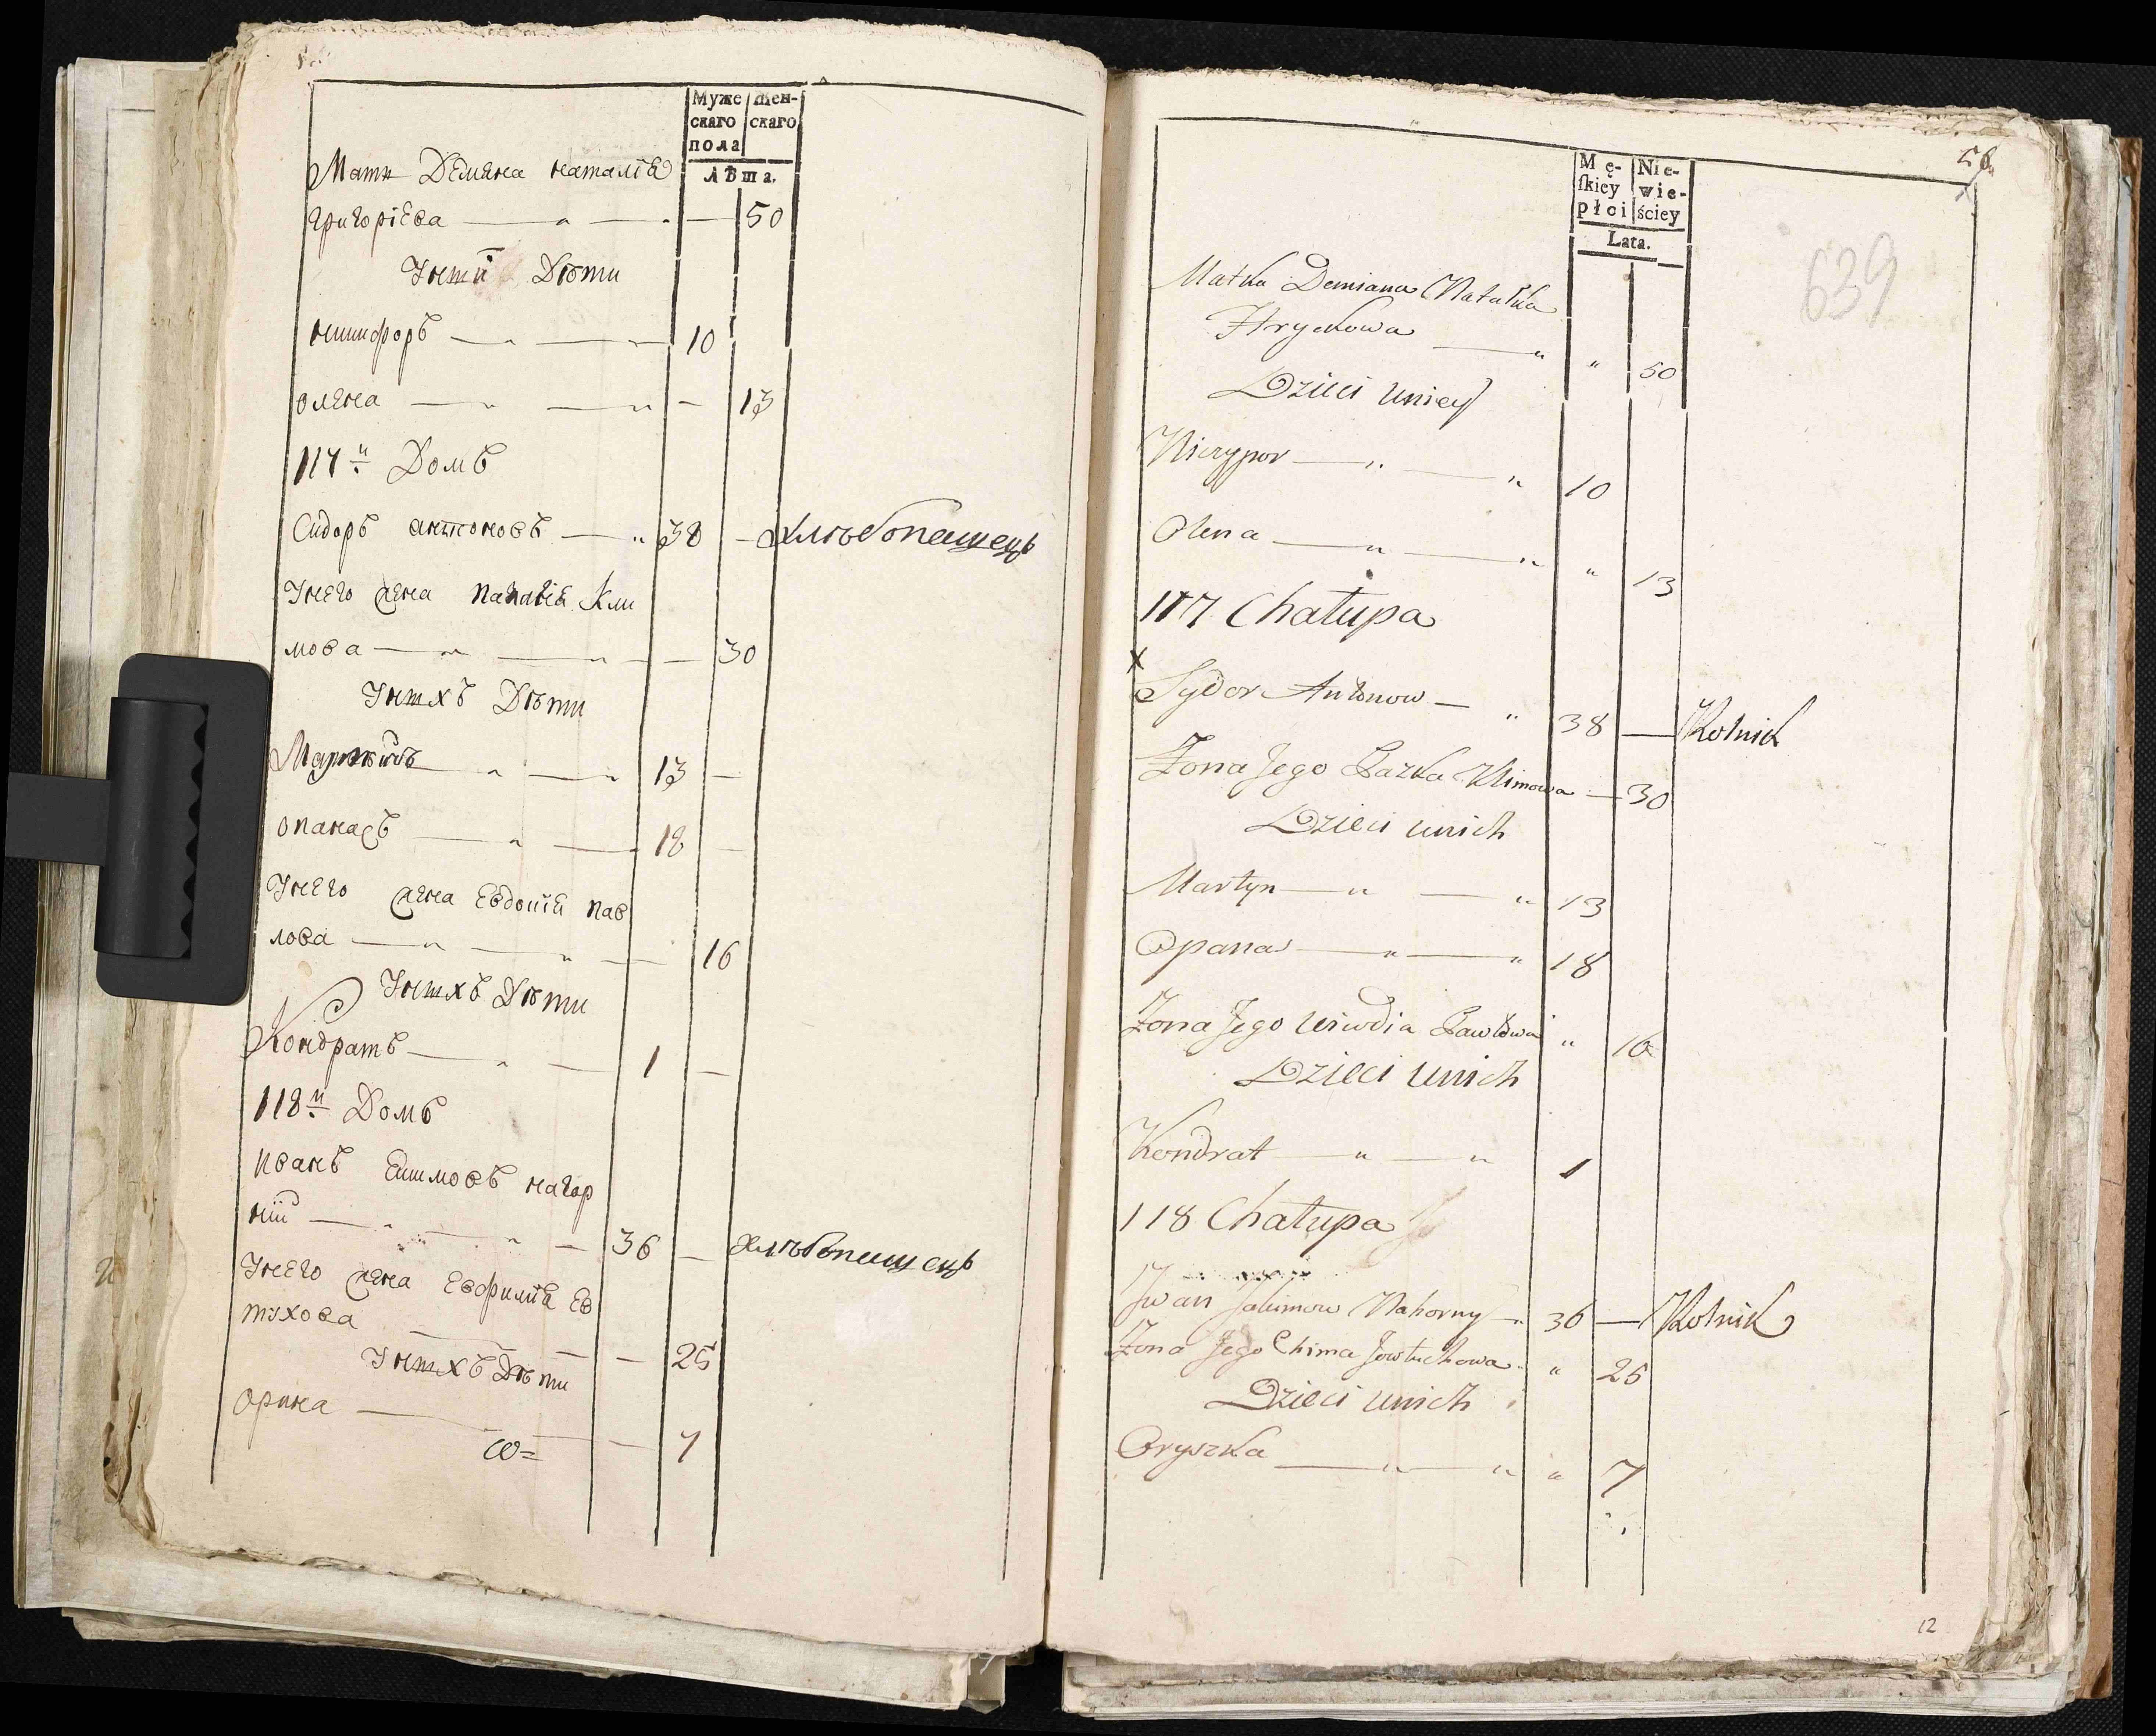 Муже
скаго
пола
Жен-
скаго
Лѣта.
Мати Демяна наталія
григоріева — „ — „ — 50
Унеи Дѣти
ничифоръ — „ — „ 10
олена — „ — „ — 13
117й Домъ
Сидоръ антоновъ — „ 38 — хлѣбопашецъ
Унего жена Параскія Кли
мова — „ — „ — 30
Унихъ Дѣти
Мартинъ — „ — „ 13 —
опанасъ — „ — 18 —
Унего жена Евдокія пав
лова — „ — „ — 16
Унихъ Дѣти
Кондратъ — „ — 1 —
118й Домъ
иванъ Екимовъ нагор
ній — „ — „ — 36 — хлѣбопашецъ
Унего жена Евфимія Ев
тухова — — — 25
Унихъ Дѣти
орина — — — 7
Mę-
skiey
płci
Nie-
wie-
ściey
Lata.
639
Matka Demiana Natalka
Hryckowa — „ „ 50
Dzieci uniey
Niczypor — „ — „ 10
Olena — „ — „ „ 13
117 Chałupa
x
Sydor Antonow — „ 38 — Rolnik
Zona Jego Pazka Klimowa — 30
Dzieci unich
Martyn — „ — „ 13
Opanas — „ — „ 18
Zona Jego Uiwdia Pawłowa „ 16
Dzieci unich
Kondrat — „ — „ 1
118 Chałupa
Jwan Jakimow Nahorny — „ 36 — Rolnik
Zona Jego Chima Jowtuchowa „ „ 25
Dzieci unich
Oryszka — „ „ „ 7
12